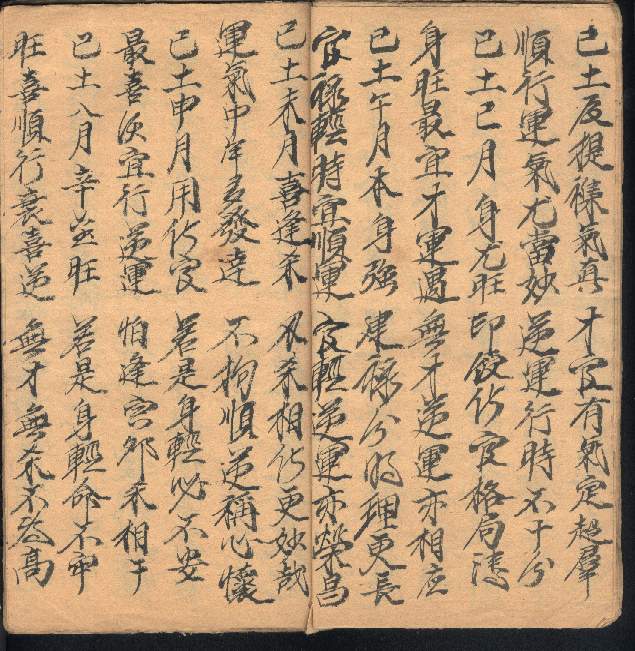 己土辰提雜氣真 才官有氣定超羣
順行運氣尤當妙 逆運行時不十分
己土巳月身尤旺 印綬化官格局清
身旺最宜才運遇 無才逆運亦相應
己土午月本身強 建祿分明理更長
官祿輕時宜順運 官輕逆運亦榮昌
己土未月喜逢殺 殺相化更妙哉
運氣中年多發達 不拘順逆稱心懷
己土申月用傷官 若是身輕必不安
最喜宜行逆運 怕逢官殺相干
己土八月辛金旺 若是身輕命不
旺喜順行衰喜逆 無才無殺不為高